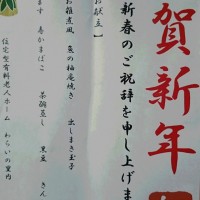 賀新年
新春のご祝辞を申し上げま
お献立】
お雑煮風 魚の柚庵焼き 出しまき玉子
ます 寿かまぼこ 茶碗蒸し 黒豆 きん
住宅型有料老人ホーム わらいの里内